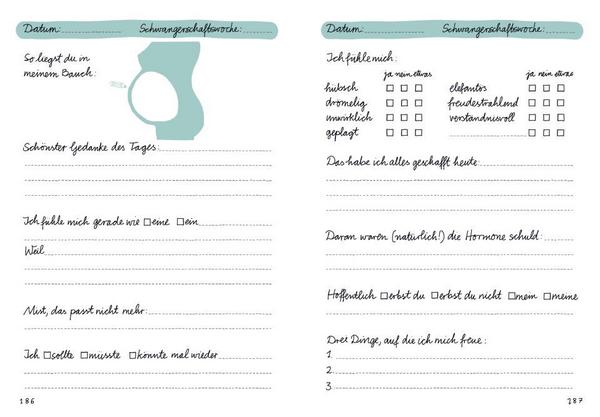 Datum: Schwangerschaftswoche:
So liegst du in
meinem Bauch:
Schönster Gedanke des Tages:
Ich fühle mich gerade wie eine ein
Weil
Mist, das passt nicht mehr:
Ich sollte müsste könnte mal wieder
186
Datum: Schwangerschaftswoche:
Ich fühle mich:
ja nein etwas ja nein etwas
hübsch elefantös
drömelig freudestrahlend
unwirklich verständnisvoll
geplagt
Das habe ich alles geschafft heute:
Daran waren (natürlich!) die Hormone schuld:
Hoffentlich erbst du erbst du nicht mein meine
Drei Dinge, auf die ich mich freue:
1.
2.
3.
187